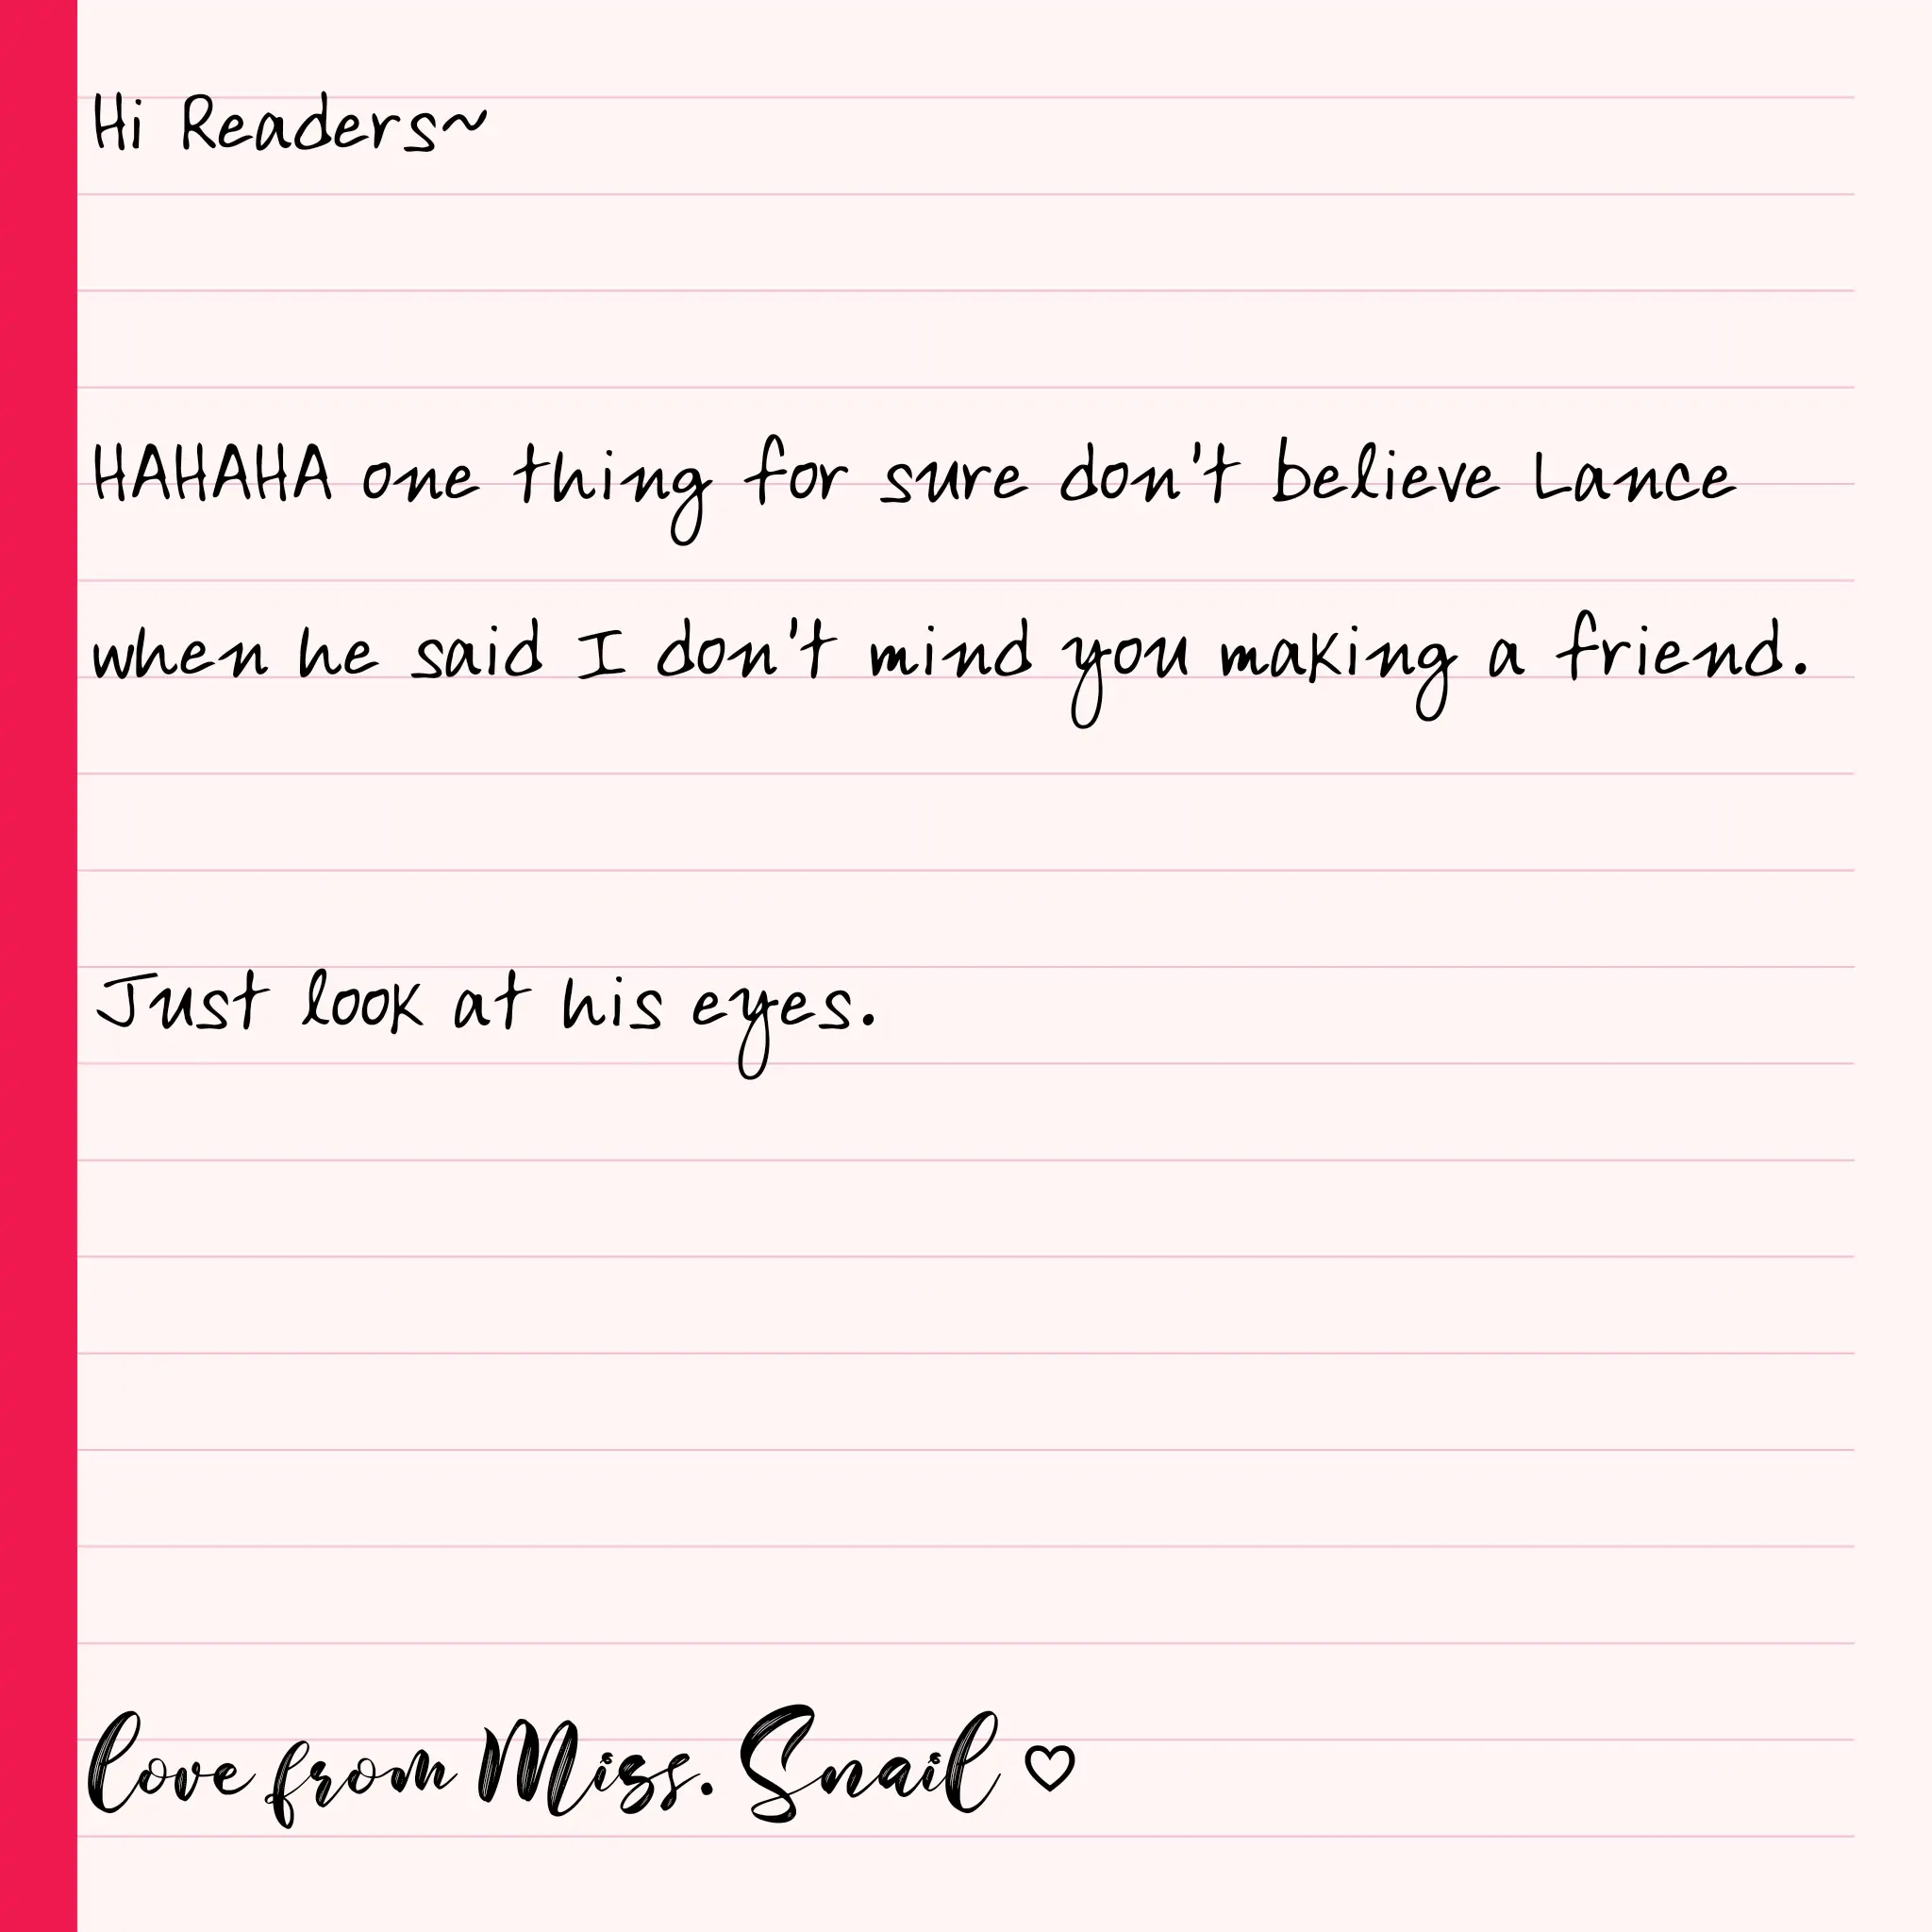 Hi Readers~
HAHAHA one thing for sure don't believe Lance
when he said I don't mind you making a friend.
Just look at his eyes.
Love from Miss. Snail ♡